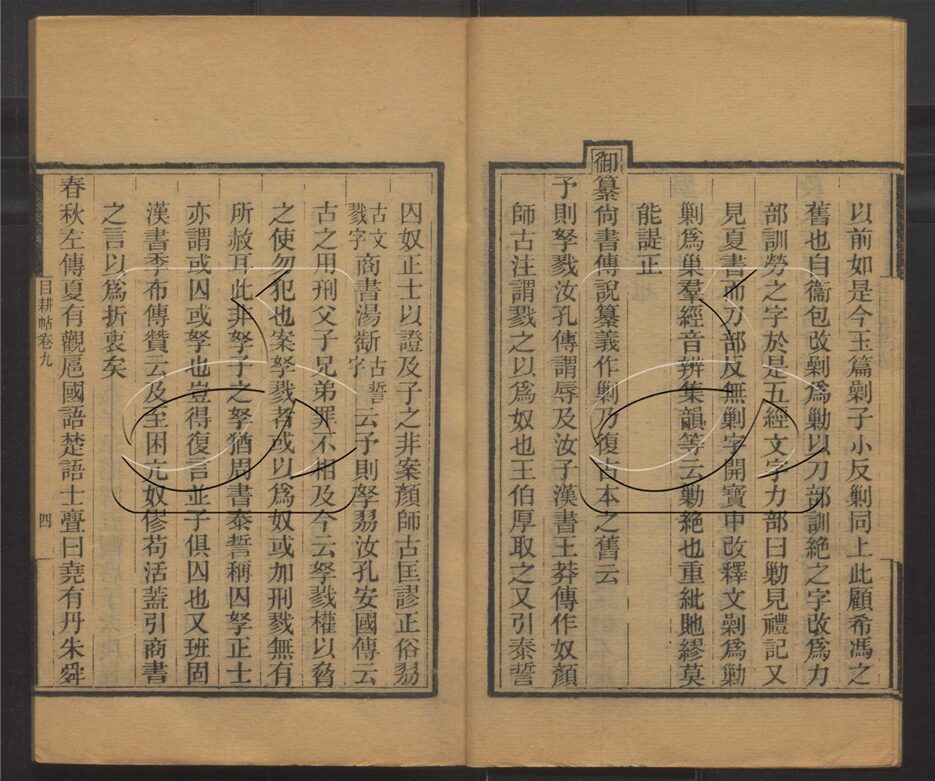 以前如是今玉篇剿子小反剿同上此顧希馮之
舊也自衞包改剿爲勦以刀部訓絶之字改爲力
部訓勞之字於是五經文字力部曰勦見禮記又
見夏書而刀部反無剿字開寶中改釋文剿爲勦
剿爲巢羣經音辨集韻等云勦絶也重紕貤繆莫
能諟正
御纂尙書傳說纂義作剿乃復古本之舊云
予則孥戮汝孔傳謂辱及汝子漢書王莽傳作奴顏
師古注謂戮之以爲奴也王伯厚取之又引泰誓
囚奴正士以證及子之非案顏師古匡謬正俗䎉
古文戮字商書湯斮古誓字云予則孥䎉汝孔安國傳云
古之用刑父子兄弟罪不相及今云孥戮權以脅
之使勿犯也案孥戮者或以爲奴或加刑戮無有
所赦耳此非孥子之孥猶周書泰誓稱囚孥正士
亦謂或囚或孥也豈得復言並子俱囚也又班固
漢書季布傳贊云及至困戹奴僇苟活蓋引商書
之言以爲折衷矣
春秋左傳夏有觀扈國語楚語士亹曰堯有丹朱舜
目耕帖卷九
四